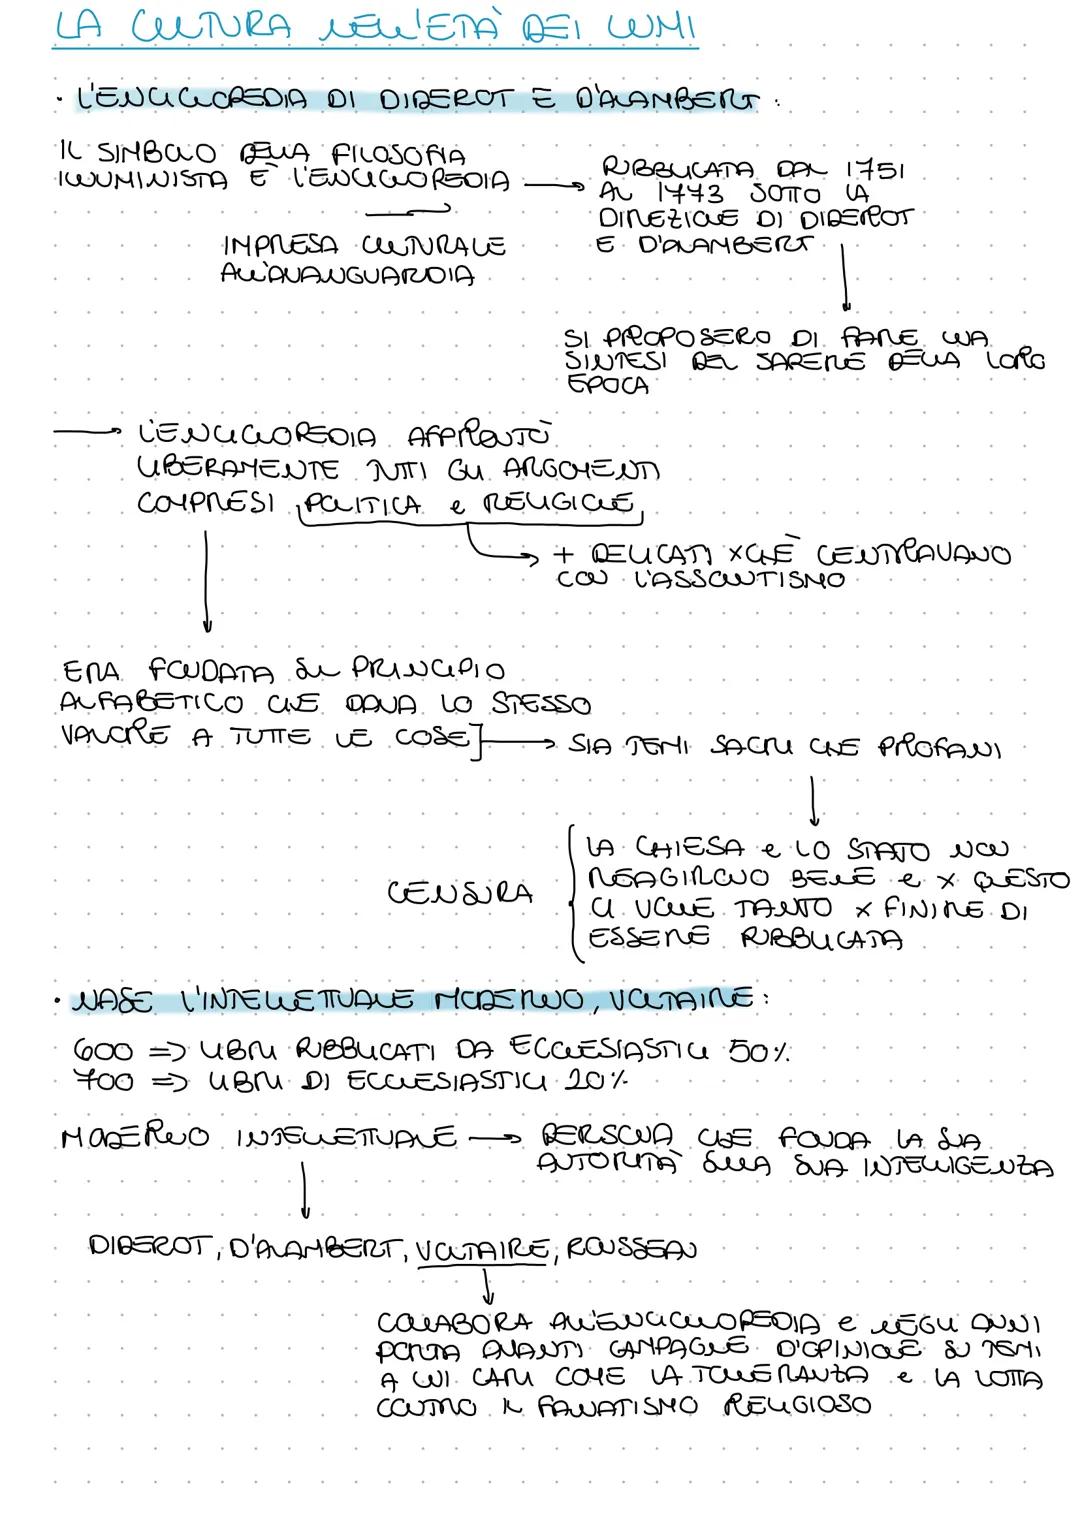 LA CULTURA NELL'ETÀ DEI LUMI
· L'ENCICLOPEDIA DI DIDEROT E D'ALAMBERT:
IL SIMBOLO DELLA FILOSOFIA
ILLUMINISTA È L'ENCICLOPEDIA →
IMPRESA CULTURALE
ALL'AVANGUARDIA
PUBBLICATA DAL 1751
AL 1773 SOTTO LA
DIREZIONE DI DIDEROT
E D'ALAMBERT
SI PROPOSERO DI FARE UNA
SINTESI DEL SAPERE DELLA LORO
EPOCA
→ L'ENCICLOPEDIA AFFRONTÒ
LIBERAMENTE TUTTI GLI ARGOMENTI
COMPRESI POLITICA e RELIGIONE
+ DELICATI XCHÈ CENTRAVANO
CON L'ASSOLUTISMO
ERA FONDATA SU PRINCIPIO
ALFABETICO CHE DAVA LO STESSO
VALORE A TUTTE LE COSE] → SIA TEMI SACRI CHE PROFANI
CENSURA
LA CHIESA e LO STATO NON
REAGIRONO BENE e X QUESTO
CI VOLLE TANTO X FINIRE DI
ESSERE PUBBLICATA
· NASE L'INTELLETTUALE MODERNO, VOLTAIRE:
600 => LIBRI PUBBLICATI DA ECCLESIASTICI 50%
700 => LIBRI DI ECCLESIASTICI 20%
MODERNO INTELLETTUALE → PERSONA CHE FONDA LA SUA
AUTORITÀ SULLA SUA INTELLIGENZA
DIDEROT, D'ALAMBERT, VOLTAIRE, ROUSSEAU
COLLABORA ALL'ENCICLOPEDIA e NEGLI ANNI
PORTA AVANTI CAMPAGNE D'OPINIONE SU TEMI
A LUI CARI COME LA TOLLERANZA e LA LOTTA
CONTRO IL FANATISMO RELIGIOSO